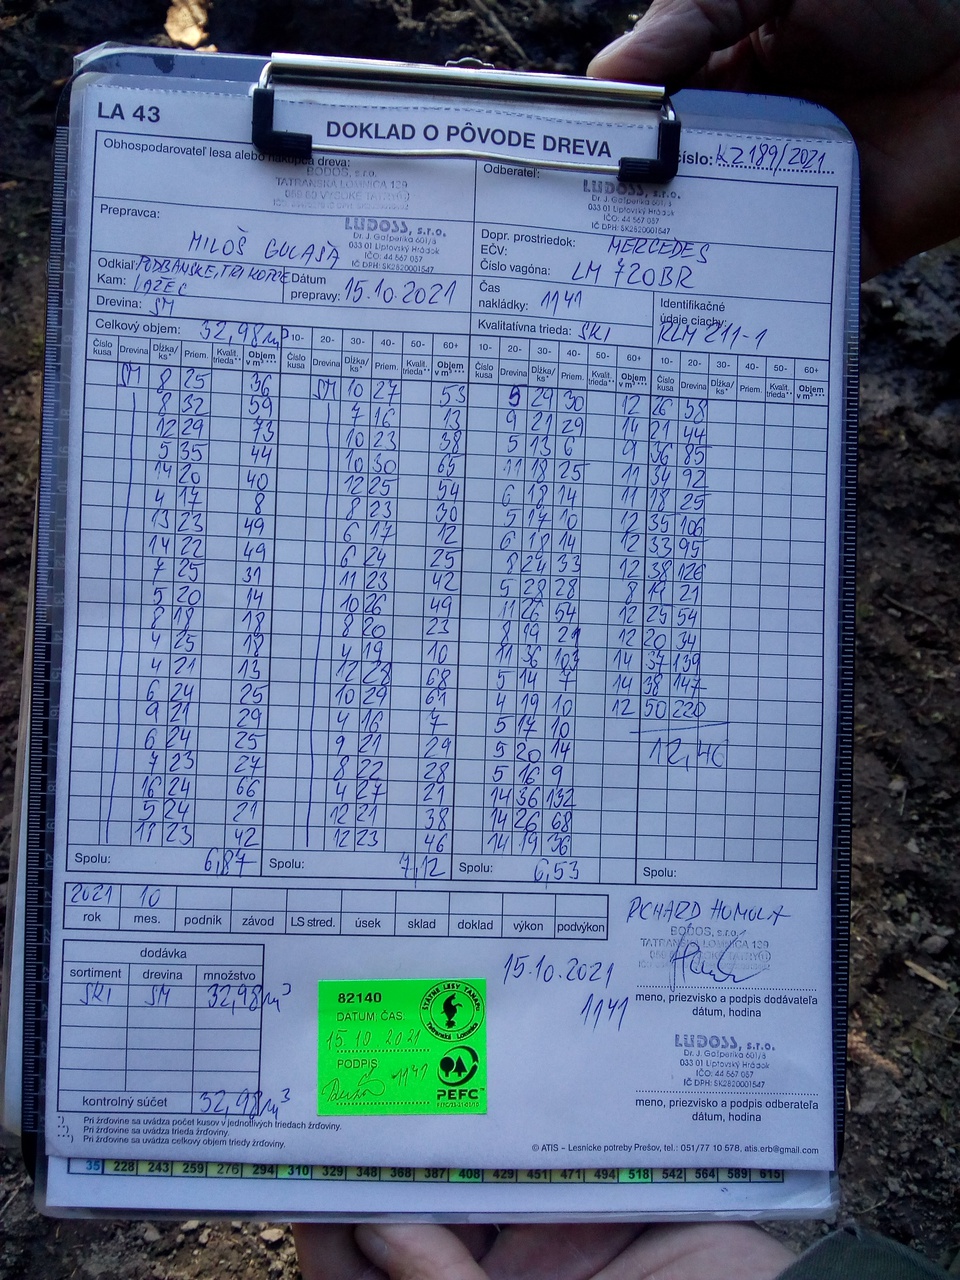 LA 43
DOKLAD O PÔVODE DREVA
číslo: KZ189/2021
Obhospodarovateľ lesa alebo nákupca dreva:
BODOS, s.r.o.
TATRANSKÁ LOMNICA 139
Odberateľ:
LUDOSS, s.r.o.
Dr. J. Gašperíka 601/3
033 01 Liptovský Hrádok
IČO: 44 567 057
IČ DPH: SK2820001547
Prepravca:
MILOŠ GULAŠA
LUDOSS, s.r.o.
Dr. J. Gašperíka 601/3
033 01 Liptovský Hrádok
IČO: 44 567 057
IČ DPH: SK2820001547
Dopr. prostriedok: MERCEDES
EČV:
Číslo vagóna: LM 720BR
Odkiaľ: PODBANSKÉ, TRI KOPCE
Kam:
Dátum
prepravy: 15.10.2021
Čas
nakládky: 1141
Identifikačné
údaje ciachy:
RLM 211-1
Drevina: SM
Celkový objem: 32,98 m³
Kvalitatívna trieda: SKI
10- 20- 30- 40- 50- 60+ 10- 20- 30- 40- 50- 60+
Číslo kusa Drevina Dĺžka/ ks* Priem. Kvalit. trieda** Objem v m³*** Číslo kusa Drevina Dĺžka/ ks* Priem. Kvalit. trieda** Objem v m³*** Číslo kusa Drevina Dĺžka/ ks* Priem. Kvalit. trieda** Objem v m³*** Číslo kusa Drevina Dĺžka/ ks* Priem. Kvalit. trieda** Objem v m³***
SM 8 25 36 SM 10 27 53 5 29 30 12 26 58
8 32 59 7 16 13 9 21 29 14 21 44
12 29 73 10 23 38 5 13 6 9 36 85
5 35 44 10 30 65 11 18 25 11 34 92
14 20 40 12 25 54 6 18 14 11 18 25
4 17 8 8 23 30 5 17 10 12 35 106
13 23 49 6 17 12 6 18 14 12 33 95
14 22 49 6 24 25 8 24 33 12 38 126
7 25 31 11 23 42 5 28 28 8 19 21
5 20 14 10 26 49 11 26 54 12 25 54
8 18 18 8 20 23 8 19 21 12 20 34
4 25 18 4 19 10 11 36 103 14 37 139
4 21 13 12 28 68 5 14 7 14 38 147
6 24 25 10 29 61 4 19 10 12 50 220
9 21 29 4 16 7 5 17 10
6 24 25 9 21 29 5 20 14 12,46
7 23 27 8 22 28 5 16 9
16 24 66 4 27 21 14 36 132
5 24 21 12 21 38 14 26 68
11 23 42 12 23 46 14 19 36
Spolu: 6,87 Spolu: 7,12 Spolu: 6,53 Spolu:
2021 10
rok mes. podnik závod LS stred. úsek sklad doklad výkon podvýkon
RICHARD HOMOLA
BODOS, s.r.o.
TATRANSKÁ LOMNICA 139
dodávka
sortiment drevina množstvo
SKI SM 32,98 m³
kontrolný súčet 32,98 m³
82140
DATUM, ČAS
15.10.2021
PODPIS
1141
ŠTÁTNE LESY TANAPu
Tatranská Lomnica
PEFC
15.10.2021
1141
meno, priezvisko a podpis dodávateľa
dátum, hodina
LUDOSS, s.r.o.
Dr. J. Gašperíka 601/3
033 01 Liptovský Hrádok
IČO: 44 567 057
IČ DPH: SK2820001547
meno, priezvisko a podpis odberateľa
dátum, hodina
*) Pri žrďovine sa uvádza počet kusov v jednotlivých triedach žrďoviny.
**) Pri žrďovine sa uvádza trieda žrďoviny.
***) Pri žrďovine sa uvádza celkový objem triedy žrďoviny.
© ATIS – Lesnícke potreby Prešov, tel.: 051/77 10 578, atis.erb@gmail.com
35 228 243 259 276 294 310 329 348 368 387 408 429 451 471 494 518 542 564 589 615